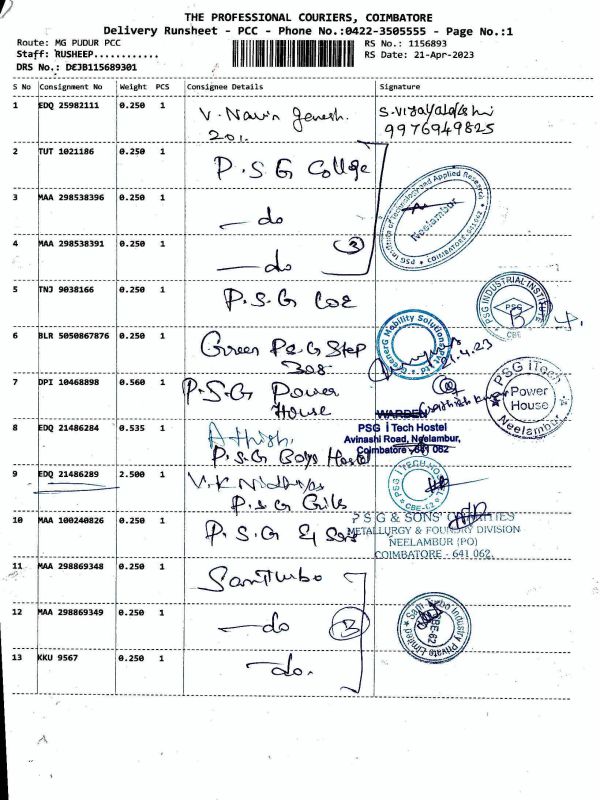 THE PROFESSIONAL COURIERS, COIMBATORE
Delivery Runsheet - PCC - Phone No.:0422-3505555 - Page No.:1
Route: MG PUDUR PCC RS No.: 1156893
Staff: RUSHEEP............ RS Date: 21-Apr-2023
DRS No.: DEJB115689301
S No Consignment No Weight PCS Consignee Details Signature
1 EDQ 25982111 0.250 1 V. Navin Genesh. S.Vijayalakshmi
201. 9976949825
2 TUT 1021186 0.250 1 P.S.G College
PSG Institute of Technology and Applied Research
Neelambur
COIMBATORE-641062
3 MAA 298538396 0.250 1 — do
4 MAA 298538391 0.250 1 — do 3
5 TNJ 9038166 0.250 1 P.S.G COE
PSG INDUSTRIAL INSTITUTE
PSG
CBE
6 BLR 5050867876 0.250 1 Green P&G Step
308
GreenerG Mobility Solutions Pvt Ltd
21.4.23
7 DPI 10468898 0.560 1 P.S.G Power
House
PSG iTech
Power
House
Neelambur
WARDEN
8 EDQ 21486284 0.535 1 Athish.
P.S.G Boys Hostel
PSG iTech Hostel
Avinashi Road, Neelambur,
Coimbatore - 641 062
9 EDQ 21486289 2.500 1 V.K Nidhyas
P.S.G Girls
PSG iTECH HOSTEL
CBE-62
10 MAA 100240826 0.250 1 P.S.G & Sons
P S G & SONS' CHARITIES
METALLURGY & FOUNDRY DIVISION
NEELAMBUR (PO)
COIMBATORE - 641 062.
11 MAA 298869348 0.250 1 Sam Turbo
12 MAA 298869349 0.250 1 — do 3
Sam Turbo Industry Private Limited
CBE-62
13 KKU 9567 0.250 1 — do.